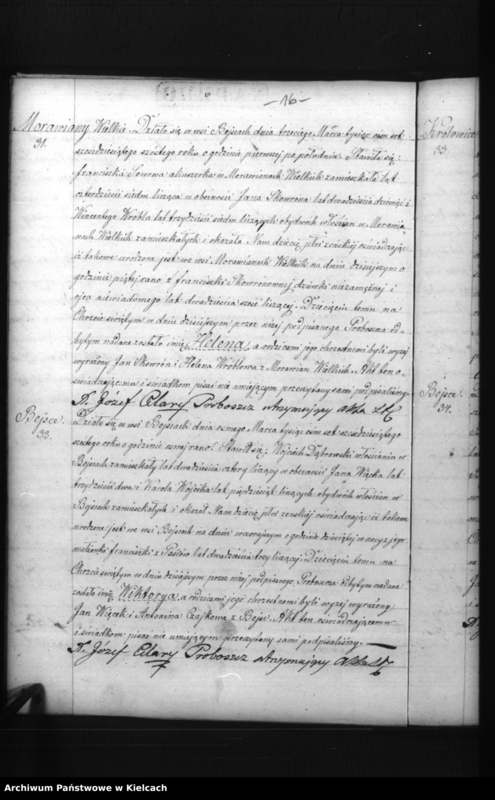 -16-
Morawiany Wielkie. Działo się we wsi Bejscach dnia trzeciego Marca tysiąc ośm set
31.
sześćdziesiątego szóstego roku o godzinie pierwszej po południu. Stawiła się
Franciszka Sowowa akuszerka w Morawianach Wielkich zamieszkała lat
czterdzieści siedm licząca w obecności Jana Skowrona lat dwadzieścia dziewięć i
Wincentego Wrobla lat trzydzieści siedm liczących obydwóch włościan w Morawia
nach Wielkich zamieszkałych i okazała Nam dziecię płci żeńskiej oświadczając
iż takowe urodzone jest we wsi Morawianach Wielkich na dniu dzisiejszym o
godzinie piątej rano z Franciszki Skowronowny dziewki niezamężnej i
ojca niewiadomego lat dwadzieścia sześć liczącej. Dziecięciu temu na
Chrzcie świętym w dniu dzisiejszym przez niżej podpisanego Proboszcza od
bytym nadane zostało imię Helena, a rodzicami jego chrzestnemi byli wyżej
wyrażony Jan Skowron i Helena Wroblowa z Morawian Wielkich. Akt ten o
świadczającemu i świadkom pisać nie umiejącym przeczytany sami podpisaliśmy.
X. Józef Celary Proboszcz utrzymujący Akta
Bejsce.
32.
Działo się we wsi Bejscach dnia osmego Marca tysiąc ośm set sześćdziesiątego
szóstego roku o godzinie osmej rano. Stawił się Wojciech Dąbrowski włościanin w
Bejscach zamieszkały lat dwadzieścia cztery liczący w obecności Jana Więcka lat
trzydzieści dwa i Karola Wójcika lat pięćdziesiąt liczących obydwóch włościan w
Bejscach zamieszkałych i okazał Nam dziecię płci żeńskiej oświadczając iż takowe
urodzone jest we wsi Bejscach na dniu wczorajszym o godzinie dziewiątej wieczór z jego
małżonki Franciszki z lat dwadzieścia trzy liczącej. Dziecięciu temu na
Chrzcie świętym w dniu dzisiejszym przez niżej podpisanego Proboszcza odbytym nadane
zostało imię Wiktorya a rodzicami jego chrzestnemi byli wyżej wyrażony
Jan Więcek i Antonina Czajkowa z Bejsc. Akt ten oświadczającemu
i świadkom pisać nie umiejącym przeczytany sami podpisaliśmy.
X. Józef Celary Proboszcz utrzymujący Akta
33.
Bejsce.
34.
Archiwum Państwowe w Kielcach